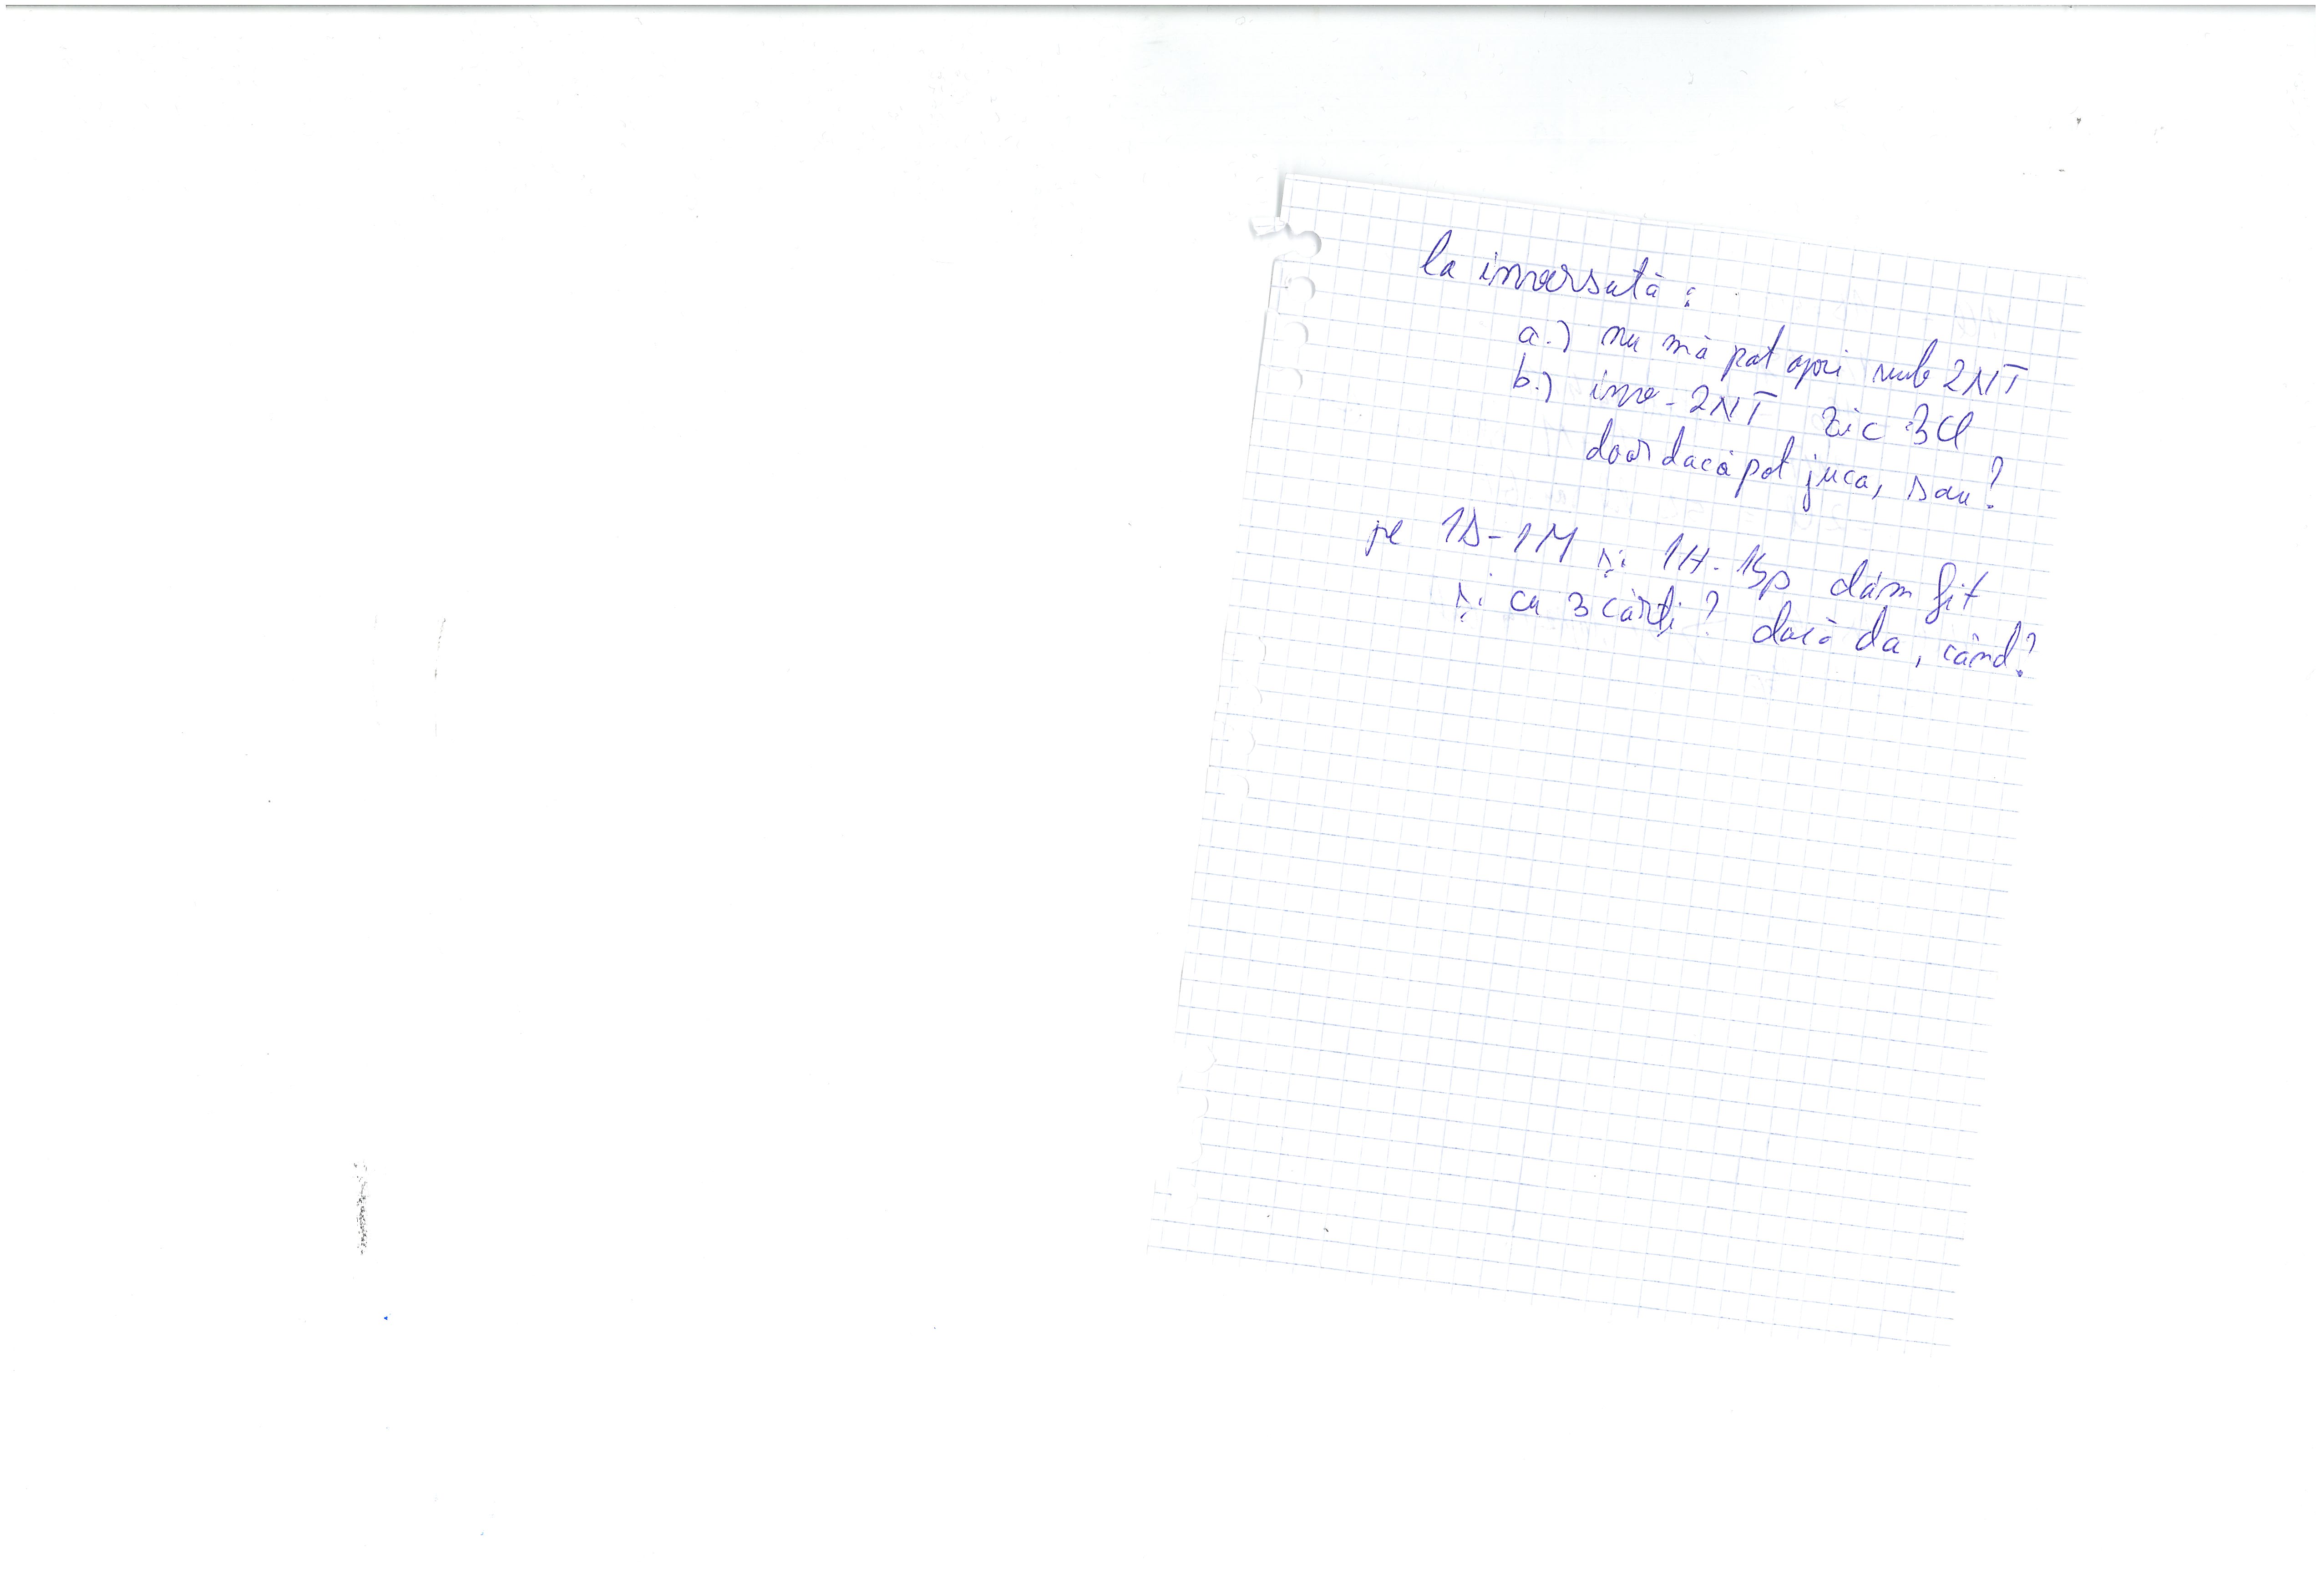 la inversată :
a.) nu mă pot opri sub 2NT
b.) inv - 2NT zic 3Cl
doar dacă pot juca, sau?
pe 1D-1M și 1H-1Sp dăm fit
și cu 3 cărți? dacă da, când?